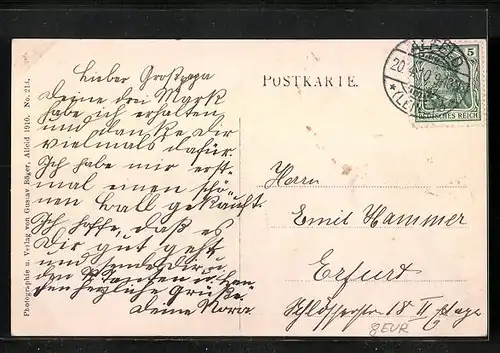 Lieber Großpapa
Deine drei Mark
habe ich erhalten
und danke Dir
vielmals dafür.
Ich habe mir erst-
mal einen schö-
nen Ball gekauft.
Ich hoffe, daß es
Dir gut geht
und sende Dir u.
den
herzliche Grüße
Deine Nora
POSTKARTE.
ALFELD
20.4.10. 9-10
*(LEINE)
5
DEUTSCHES REICH
Herrn
Emil Hammer
Erfurt
Schlösserstr 18 II Etage
8 EUR
Photographie u. Verlag von Gustav Böger, Alfeld 1910. No. 214.